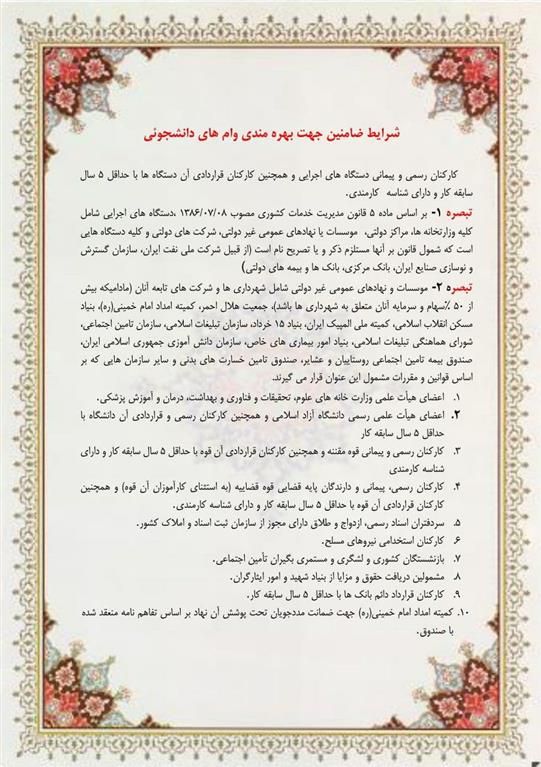 شرایط ضامنین جهت بهره مندی وام های دانشجوئی
کارکنان رسمی و پیمانی دستگاه های اجرایی و همچنین کارکنان قراردادی آن دستگاه ها با حداقل ۵ سال
سابقه کار و دارای شناسه کارمندی.
تبصره ۱- بر اساس ماده ۵ قانون مدیریت خدمات کشوری مصوب ۱۳۸۶/۰۷/۰۸ ،دستگاه های اجرایی شامل
کلیه وزارتخانه ها، مراکز دولتی، موسسات یا نهادهای عمومی غیر دولتی، شرکت های دولتی و کلیه دستگاه هایی
است که شمول قانون بر آنها مستلزم ذکر و یا تصریح نام است (از قبیل شرکت ملی نفت ایران، سازمان گسترش
و نوسازی صنایع ایران، بانک مرکزی، بانک ها و بیمه های دولتی)
تبصره ۲- موسسات و نهادهای عمومی غیر دولتی شامل شهرداری ها و شرکت های تابعه آنان (مادامیکه بیش
از ۵۰ ٪سهام و سرمایه آنان متعلق به شهرداری ها باشد)، جمعیت هلال احمر، کمیته امداد امام خمینی(ره)، بنیاد
مسکن انقلاب اسلامی، کمیته ملی المپیک ایران، بنیاد ۱۵ خرداد، سازمان تبلیغات اسلامی، سازمان تامین اجتماعی،
شورای هماهنگی تبلیغات اسلامی، بنیاد امور بیماری های خاص، سازمان دانش آموزی جمهوری اسلامی ایران،
صندوق بیمه تامین اجتماعی روستاییان و عشایر، صندوق تامین خسارت های بدنی و سایر سازمان هایی که بر
اساس قوانین و مقررات مشمول این عنوان قرار می گیرند.
۱. اعضای هیأت علمی وزارت خانه های علوم، تحقیقات و فناوری و بهداشت، درمان و آموزش پزشکی.
۲. اعضای هیأت علمی رسمی دانشگاه آزاد اسلامی و همچنین کارکنان رسمی و قراردادی آن دانشگاه با
حداقل ۵ سال سابقه کار
۳. کارکنان رسمی و پیمانی قوه مقننه و همچنین کارکنان قراردادی آن قوه با حداقل ۵ سال سابقه کار و دارای
شناسه کارمندی
۴. کارکنان رسمی، پیمانی و دارندگان پایه قضایی قوه قضاییه (به استثنای کارآموزان آن قوه) و همچنین
کارکنان قراردادی آن قوه با حداقل ۵ سال سابقه کار و دارای شناسه کارمندی.
۵. سردفتران اسناد رسمی، ازدواج و طلاق دارای مجوز از سازمان ثبت اسناد و املاک کشور.
۶. کارکنان استخدامی نیروهای مسلح.
۷. بازنشستگان کشوری و لشگری و مستمری بگیران تأمین اجتماعی.
۸. مشمولین دریافت حقوق و مزایا از بنیاد شهید و امور ایثارگران.
۹. کارکنان قرارداد دائم بانک ها با حداقل ۵ سال سابقه کار.
۱۰. کمیته امداد امام خمینی(ره) جهت ضمانت مددجویان تحت پوشش آن نهاد بر اساس تفاهم نامه منعقد شده
با صندوق.